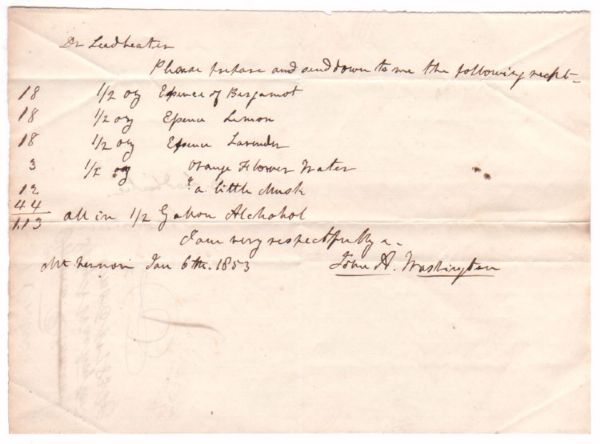 Dr Leadbeater
Please prepare and send down to me the following recpt-
18 1/2 oz Essence of Bergamot
18 1/2 oz Essence Lemon
18 1/2 oz Essence Lavender
3 1/2 oz Orange Flower Water
12 & a little Musk
44 all in 1/2 Gallon Alchohol
1.13
I am very respectfully &c
Mt Vernon Jan 6th. 1853 John A. Washington